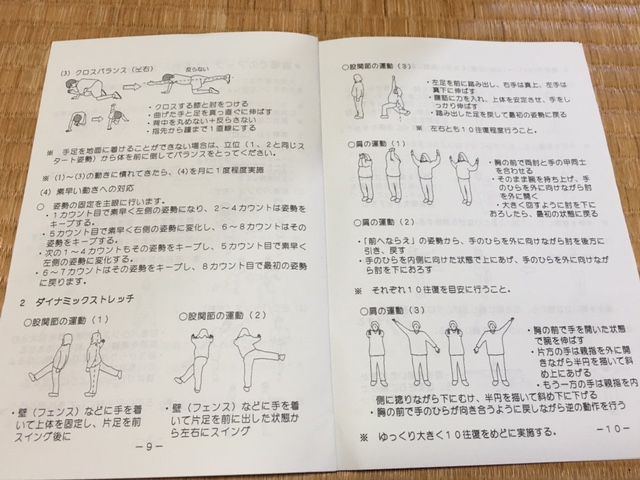 (3) クロスバランス(左右)
反らない
・クロスする膝と肘をつける
・曲げた手と足を真っ直ぐに伸ばす
・背中を丸めない+反らない
・指先から踵まで1直線にする
※ 手足を地面に着けることができない場合は、立位(1、2と同じス
タート姿勢)から体を前に倒してバランスをとってください。
※ (1)~(3)の動きに慣れてきたら、(4)を月に1度程実施
(4) 素早い動きへの対応
○ 姿勢の固定を主眼に行います。
・1カウント目で素早く左側の姿勢になり、2~4カウントは姿勢を
キープする。
・5カウント目で素早く右側の姿勢に変化し、6~8カウントはその
姿勢をキープする。
・次の1~4カウントもその姿勢をキープし、5カウント目で素早く
左側の姿勢に変化する。
・6~7カウントはその姿勢をキープし、8カウント目で最初の姿勢
に戻ります。
2 ダイナミックストレッチ
○股関節の運動(1)
○股関節の運動(2)
・壁(フェンス)などに手を着
いて上体を固定し、片足を前
スイング後に
・壁(フェンス)などに手を着
いて片足を前に出した状態か
ら左右にスイング
-9-
○股関節の運動(3)
・左足を前に踏み出し、右手は真上、左手は
真下に伸ばす
・腹筋に力を入れ、上体を安定させ、手をし
っかり伸ばす
・踏み出した足を戻して最初の姿勢に戻る
※ 左右とも10往復程度行うこと。
○肩の運動(1)
・胸の前で両肘と手の甲同士
を合わせる
・そのまま腕を持ち上げ、手
のひらを外に向けながら肘
を外に開く
・大きく回すように肘を下に
おろしたら、最初の状態に戻る
○肩の運動(2)
・「前へならえ」の姿勢から、手のひらを外に向けながら肘を後方に
引き、戻す
・手のひらを内側に向けた状態で上にあげ、手のひらを外に向けなが
ら肘を下におろす
※ それぞれ10往復を目安に行うこと。
○肩の運動(3)
・胸の前で手を開いた状態
で腕を伸ばす
・片方の手は親指を外に開
きながら半円を描いて斜
め上にあげる
・もう一方の手は親指を内
側に捻りながら下にむけ、半円を描いて斜め下に下げる
・胸の前で手のひらが向き合うように戻しながら逆の動作を行う
※ ゆっくり大きく10往復をめどに実施する。
-10-